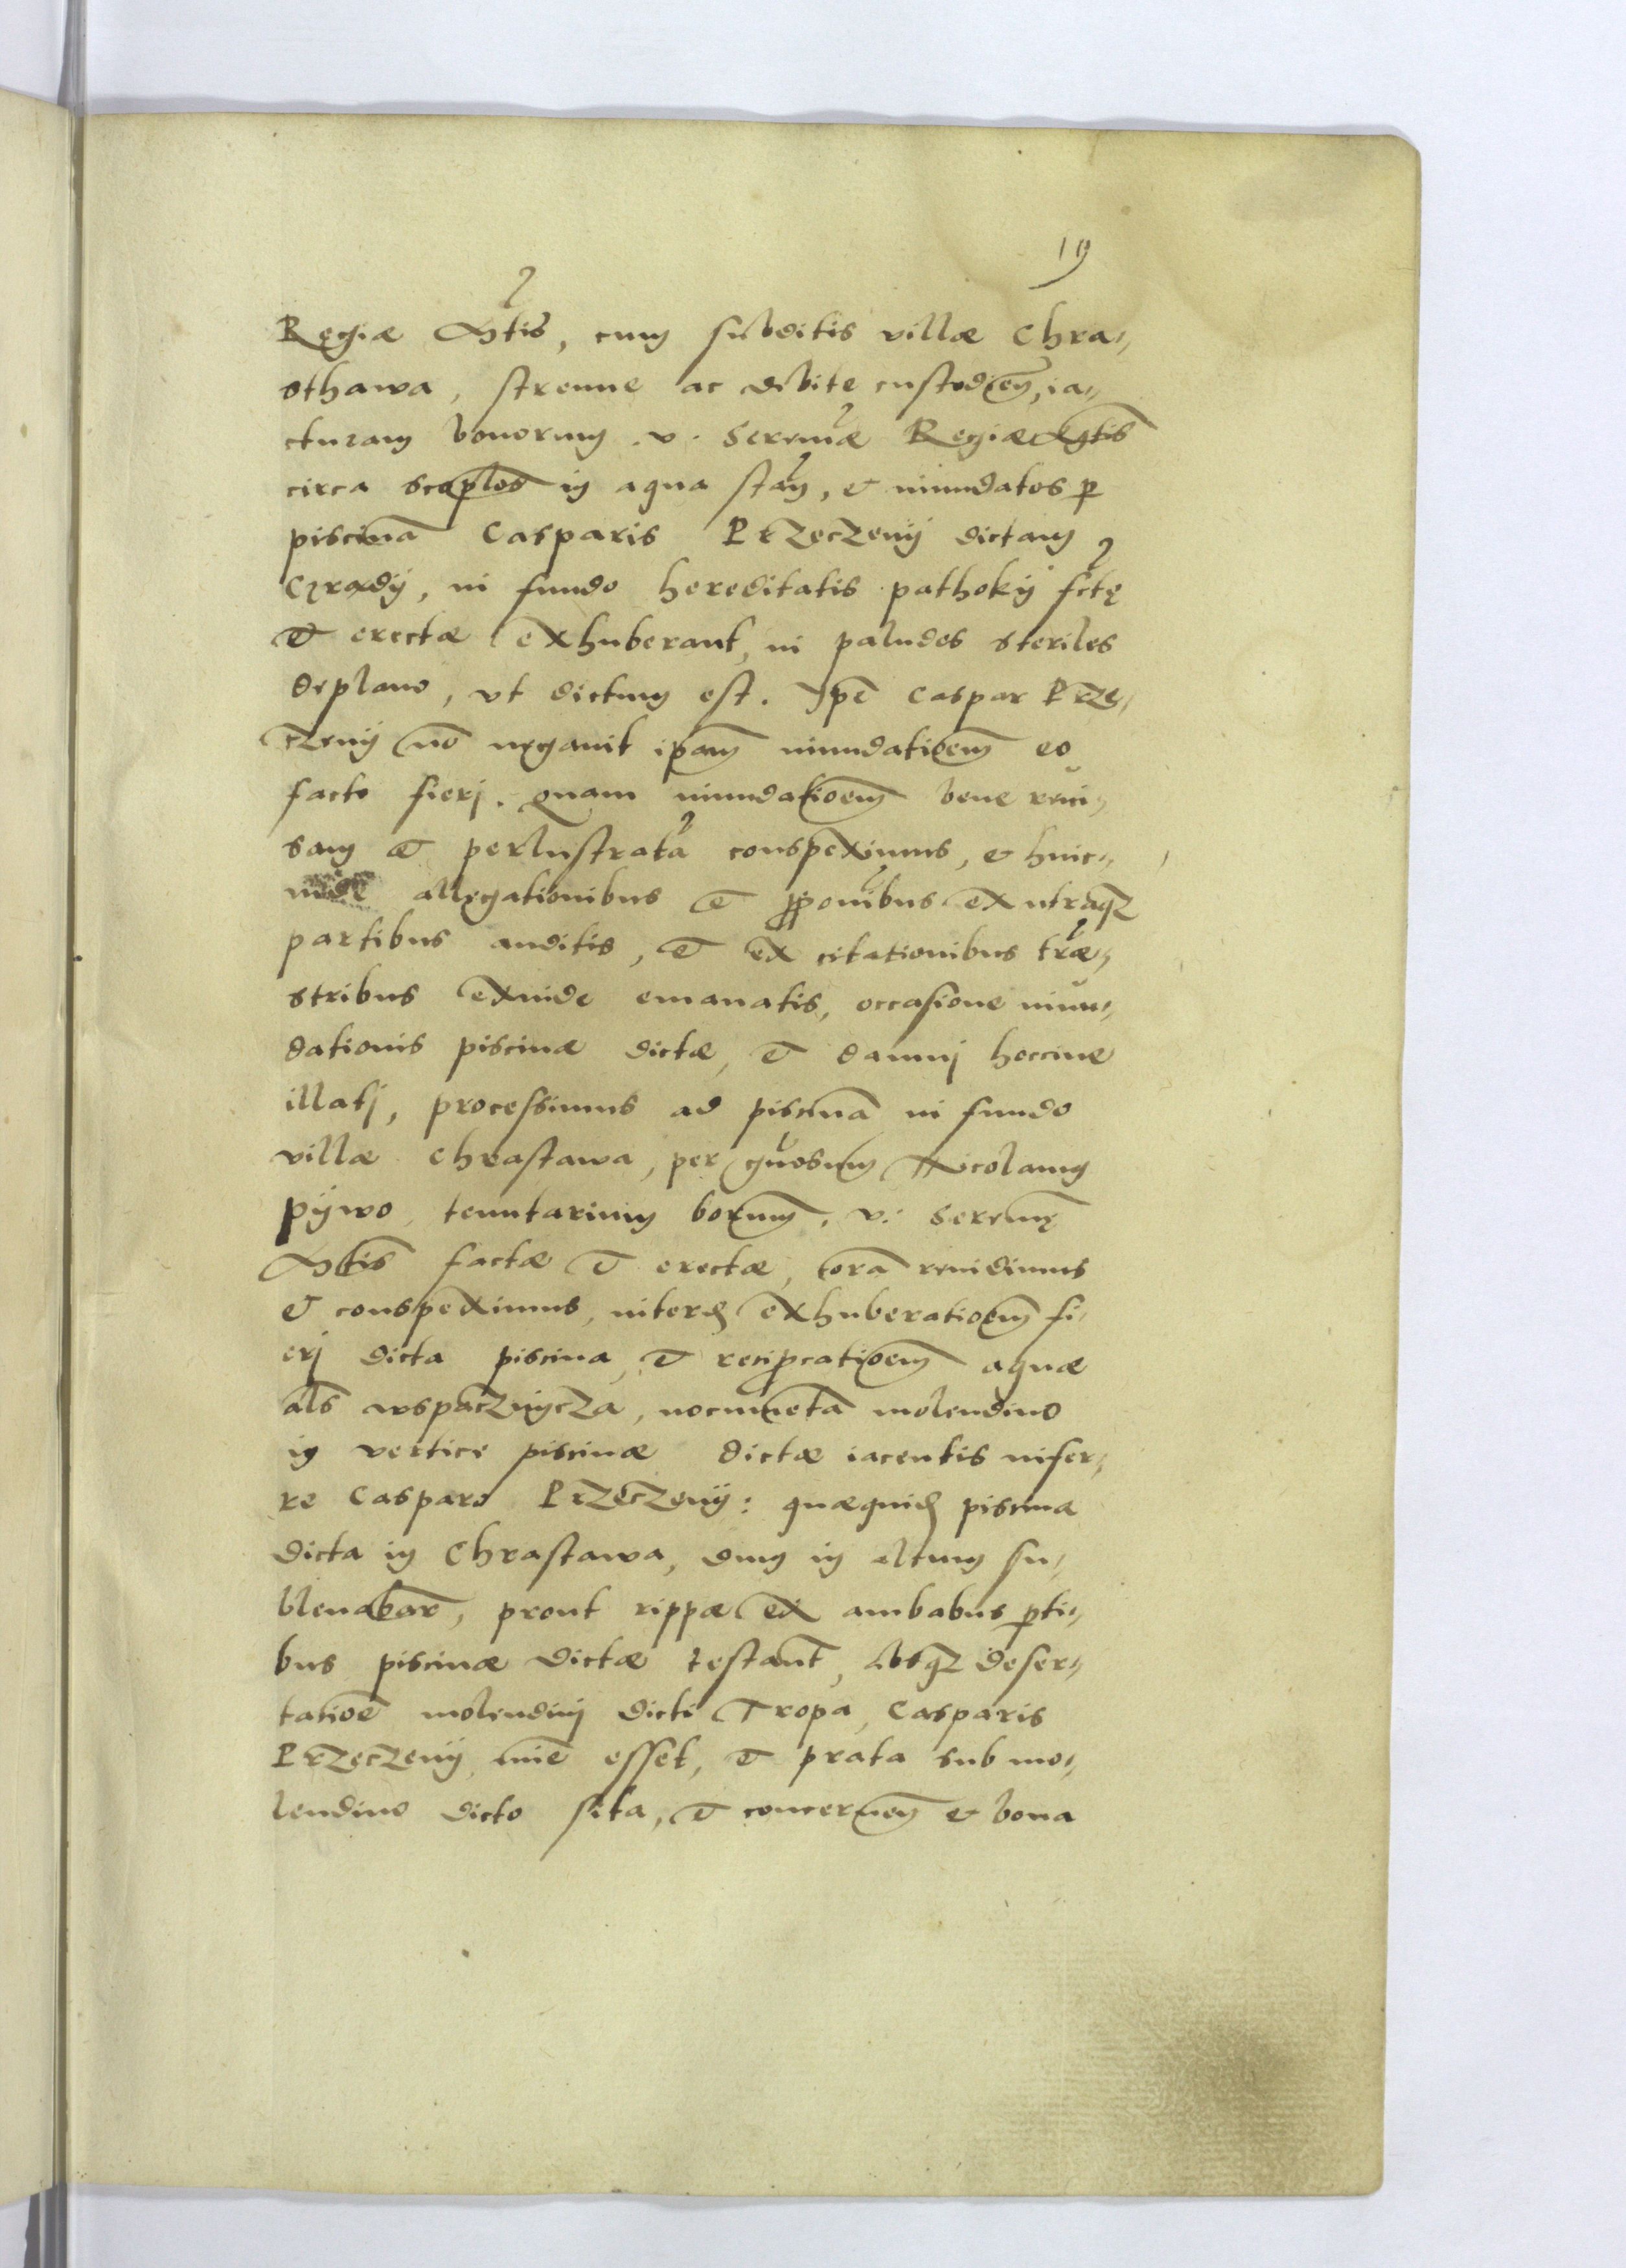 19
Regiæ Mtis, cum subditis villæ Chra-
sthawa, strenue ac debite custodien, ia-
cturam bonorum .v. Serenæ Regiæ Mtis
circa scoplos in aqua stan, et inundatos p
piscinā Casparis Przeczenÿ dictam
Czrodÿ, in fundo hereditatis pathokÿ fctę
et erectæ exhuberant, in paludes steriles
deplano, vt dictum est. Ipē Caspar Prze-
czenÿ nō negauit ipam inundatioem eo
facto fierj. Quam inundatioem bene reui-
sam et perlustratā conspeximus, et huic-
inde allegationibus et pponibus ex utraqz
partibus auditis, et ex citationibus træ-
stribus exinde emanatis, occasione inun-
dationis piscinæ dictæ, et damnj hoccine
illatj, processimus ad piscinā in fundo
villæ Chrastawa, per gnosum Nicolaum
Pÿwo, tenutarium borum, v: Serenę
Mtis factæ et erectæ, corā reuidimus
et conspeximus, exhuberatioem fi-
erj dicta piscina, et reciprcatioem aquæ
als wspaczniycza, nocumeta molendino
in vertice piscinæ dictæ iacentis infer-
re Casparo Przeczenÿ: quæquid piscina
dicta in Chrastawa, dum in altum su-
bleuabar, prout rippæ ex ambabus pti-
bus piscinæ dictæ testant, absqz deser-
tatioē molendinj dicti Tropa, Casparis
Przeczenÿ, mīe esset, et prata sub mo-
lendino dicto sita, et concernen et bona